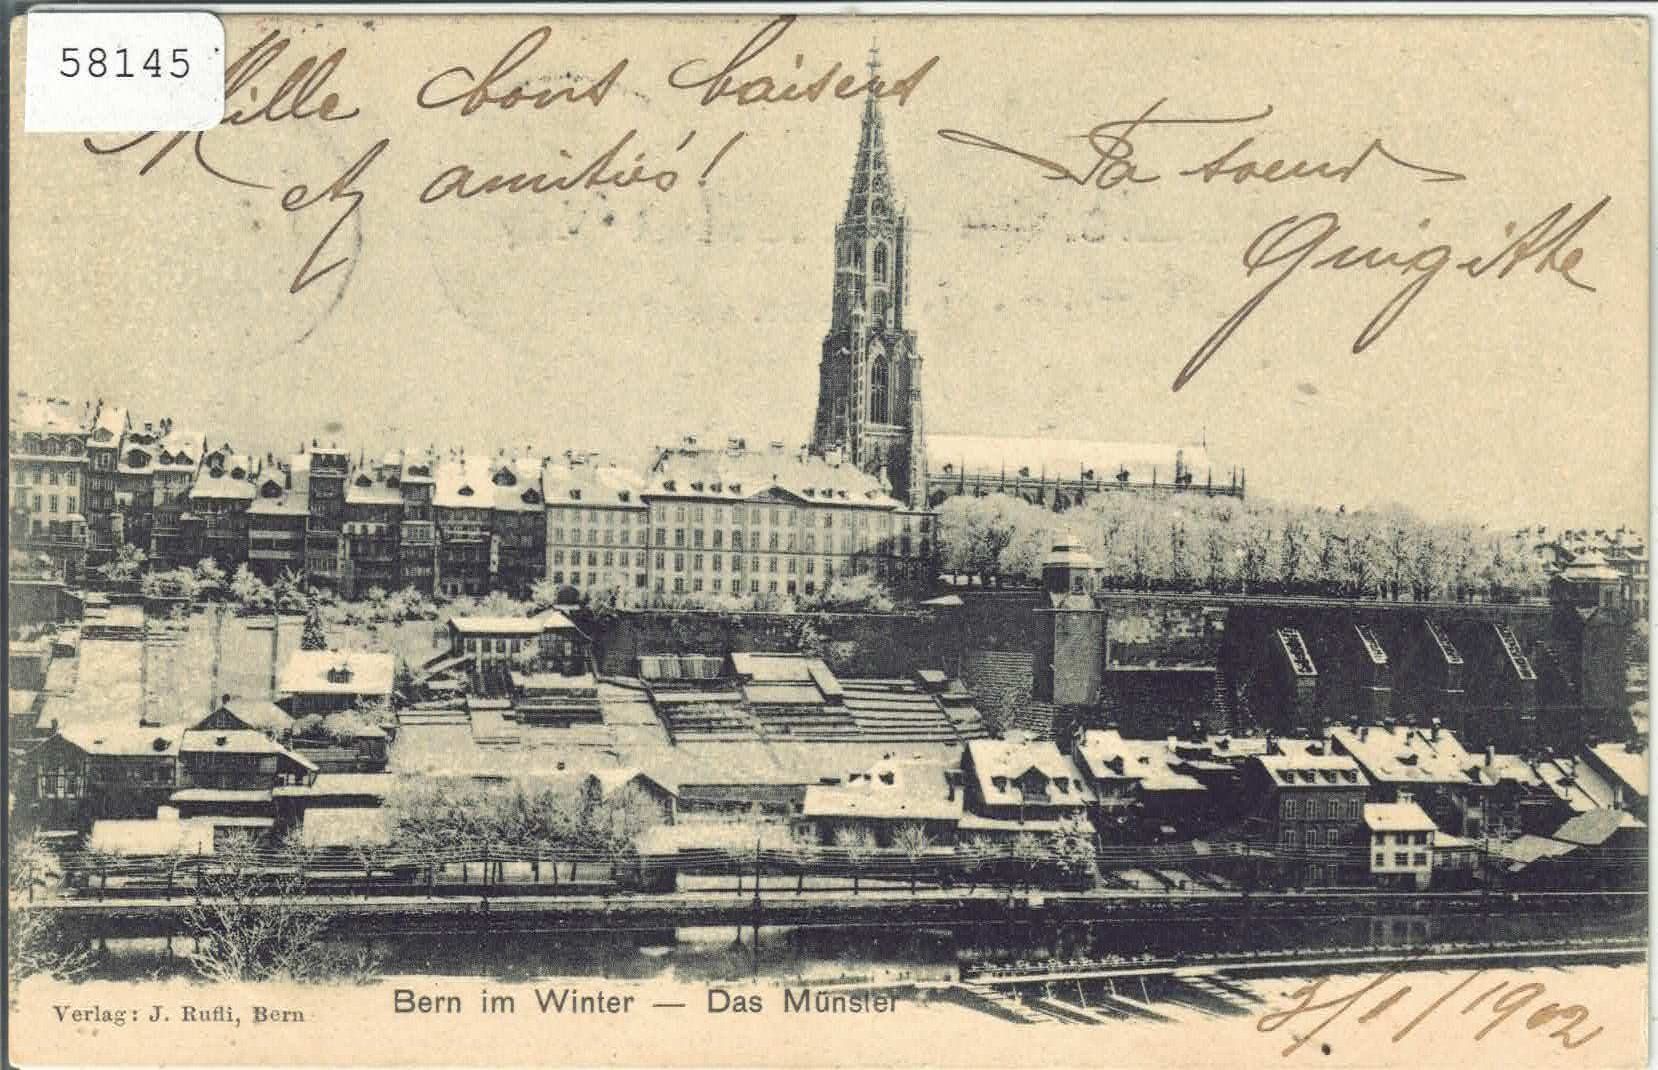 58145
Mille bons baisers
et amitiés!
Ta soeur
Bern im Winter — Das Münster
Verlag: J. Rufli, Bern
/1/1902